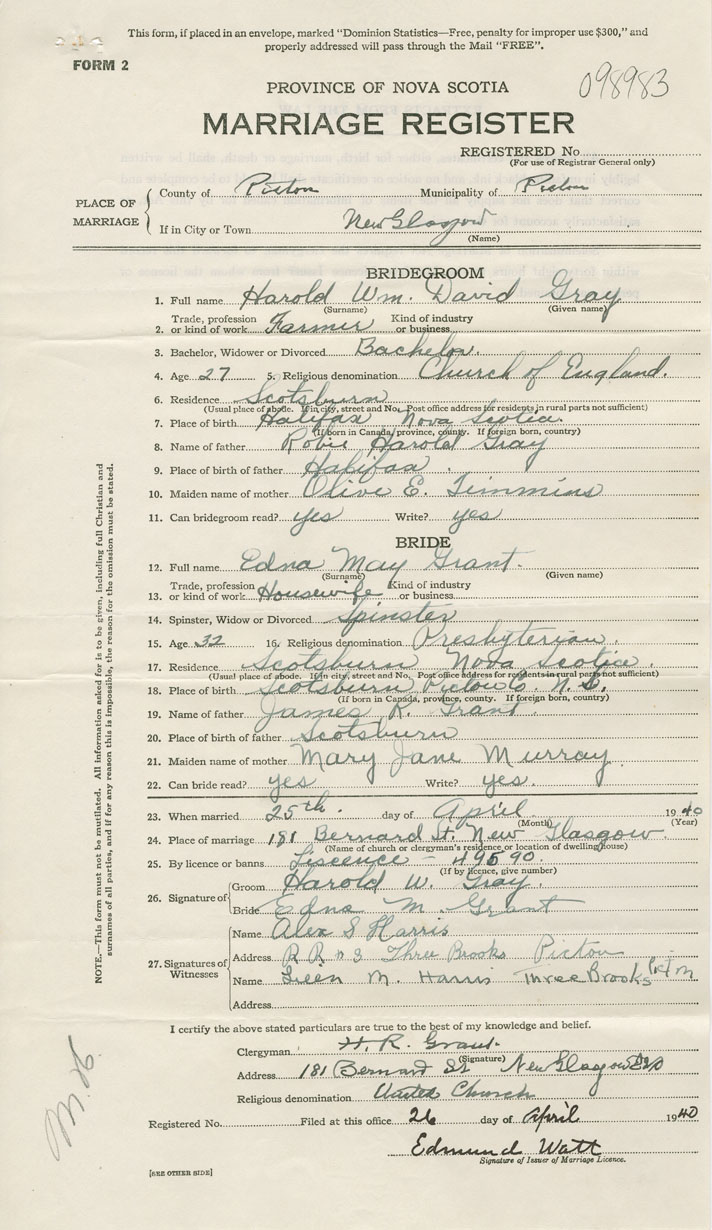 This form, if placed in an envelope, marked "Dominion Statistics—Free, penalty for improper use $300," and
properly addressed will pass through the Mail "FREE".
FORM 2
098983
PROVINCE OF NOVA SCOTIA
MARRIAGE REGISTER
REGISTERED No.
(For use of Registrar General only)
PLACE OF MARRIAGE
County of Pictou Municipality of Pictou
If in City or Town New Glasgow
(Name)
BRIDEGROOM
1. Full name Harold Wm. David Gray
(Surname) (Given name)
2. Trade, profession or kind of work Farmer Kind of industry or business
3. Bachelor, Widower or Divorced Bachelor.
4. Age 27 5. Religious denomination Church of England.
6. Residence Scotsburn
(Usual place of abode. If in city, street and No. Post office address for residents in rural parts not sufficient)
7. Place of birth Halifax Nova Scotia.
(If born in Canada, province, county. If foreign born, country)
8. Name of father Robie Harold Gray
9. Place of birth of father Halifax.
10. Maiden name of mother Olive E. Timmins
11. Can bridegroom read? yes Write? yes
BRIDE
12. Full name Edna May Grant.
(Surname) (Given name)
13. Trade, profession or kind of work Housewife Kind of industry or business
14. Spinster, Widow or Divorced Spinster
15. Age 32 16. Religious denomination Presbyterian.
17. Residence Scotsburn Nova Scotia.
(Usual place of abode. If in city, street and No. Post office address for residents in rural parts not sufficient)
18. Place of birth Scotsburn Pictou Co. N. S.
(If born in Canada, province, county. If foreign born, country)
19. Name of father James R. Grant.
20. Place of birth of father Scotsburn
21. Maiden name of mother Mary Jane Murray.
22. Can bride read? yes Write? yes
23. When married 25th. day of April 1940
(Month) (Year)
24. Place of marriage 181 Bernard St. New Glasgow.
(Name of church or clergyman's residence or location of dwelling house)
25. By licence or banns Liscence - 49590.
(If by licence, give number)
26. Signature of
Groom Harold W. Gray.
Bride Edna M. Grant
27. Signatures of Witnesses
Name Alex S Harris
Address R R n 3 Three Brooks Pictou
Name M. Harris Three Brooks
Address
I certify the above stated particulars are true to the best of my knowledge and belief.
Clergyman H. R. Grant.
(Signature)
Address 181 Bernard St New Glasgow
Religious denomination United Church
Registered No. Filed at this office 26 day of April 1940
Edmund Watt
Signature of Issuer of Marriage Licence.
[SEE OTHER SIDE]
NOTE.—This form must not be mutilated. All information asked for is to be given, including full Christian and
surnames of all parties, and if for any reason this is impossible, the reason for the omission must be stated.